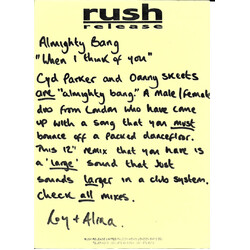 rush
release
Almighty Bang
"When I think of you"
Cyd Parker and Danny Skeets
are "almighty bang." A male/female
duo from London who have come
up with a song that you must
bounce off a packed dancefloor.
This 12" remix that you have is
a 'large' sound that just
sounds larger in a club system.
Check all mixes.
Roy + Alma
RUSH RELEASE LIMITED